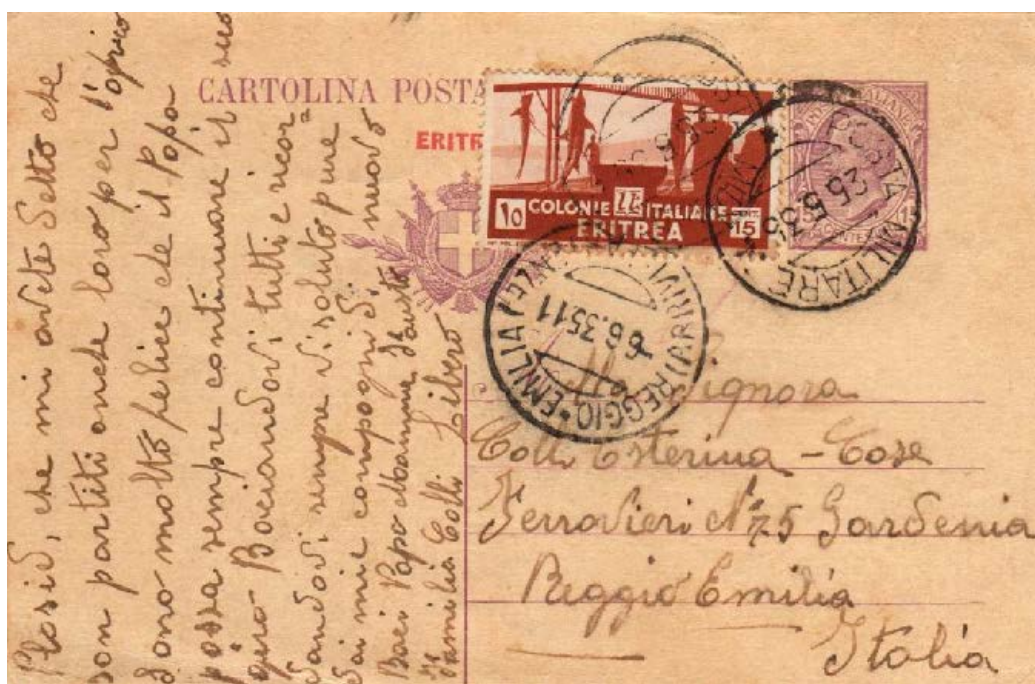 CARTOLINA POSTA
ERITR
10 COLONIE ITALIANE CENT. 15
ERITREA
POSTA MILITARE
26.5.35
REGGIO EMILIA
ARRIVI
6.6.35 11
Signora
Colli Esterina - Case
Ferrovieri N° 75 Gardenia
Reggio Emilia
Italia
che mi avete detto che
son partiti anche loro per l'
Sono molto felice che il Papa
possa sempre continuare il suo
giro - Baciandovi tutti e ricor
dandovi sempre vi saluto pure
dai miei compagni di nuovo
Baci Papa Mamma Fausto
Famiglia Colli Libero